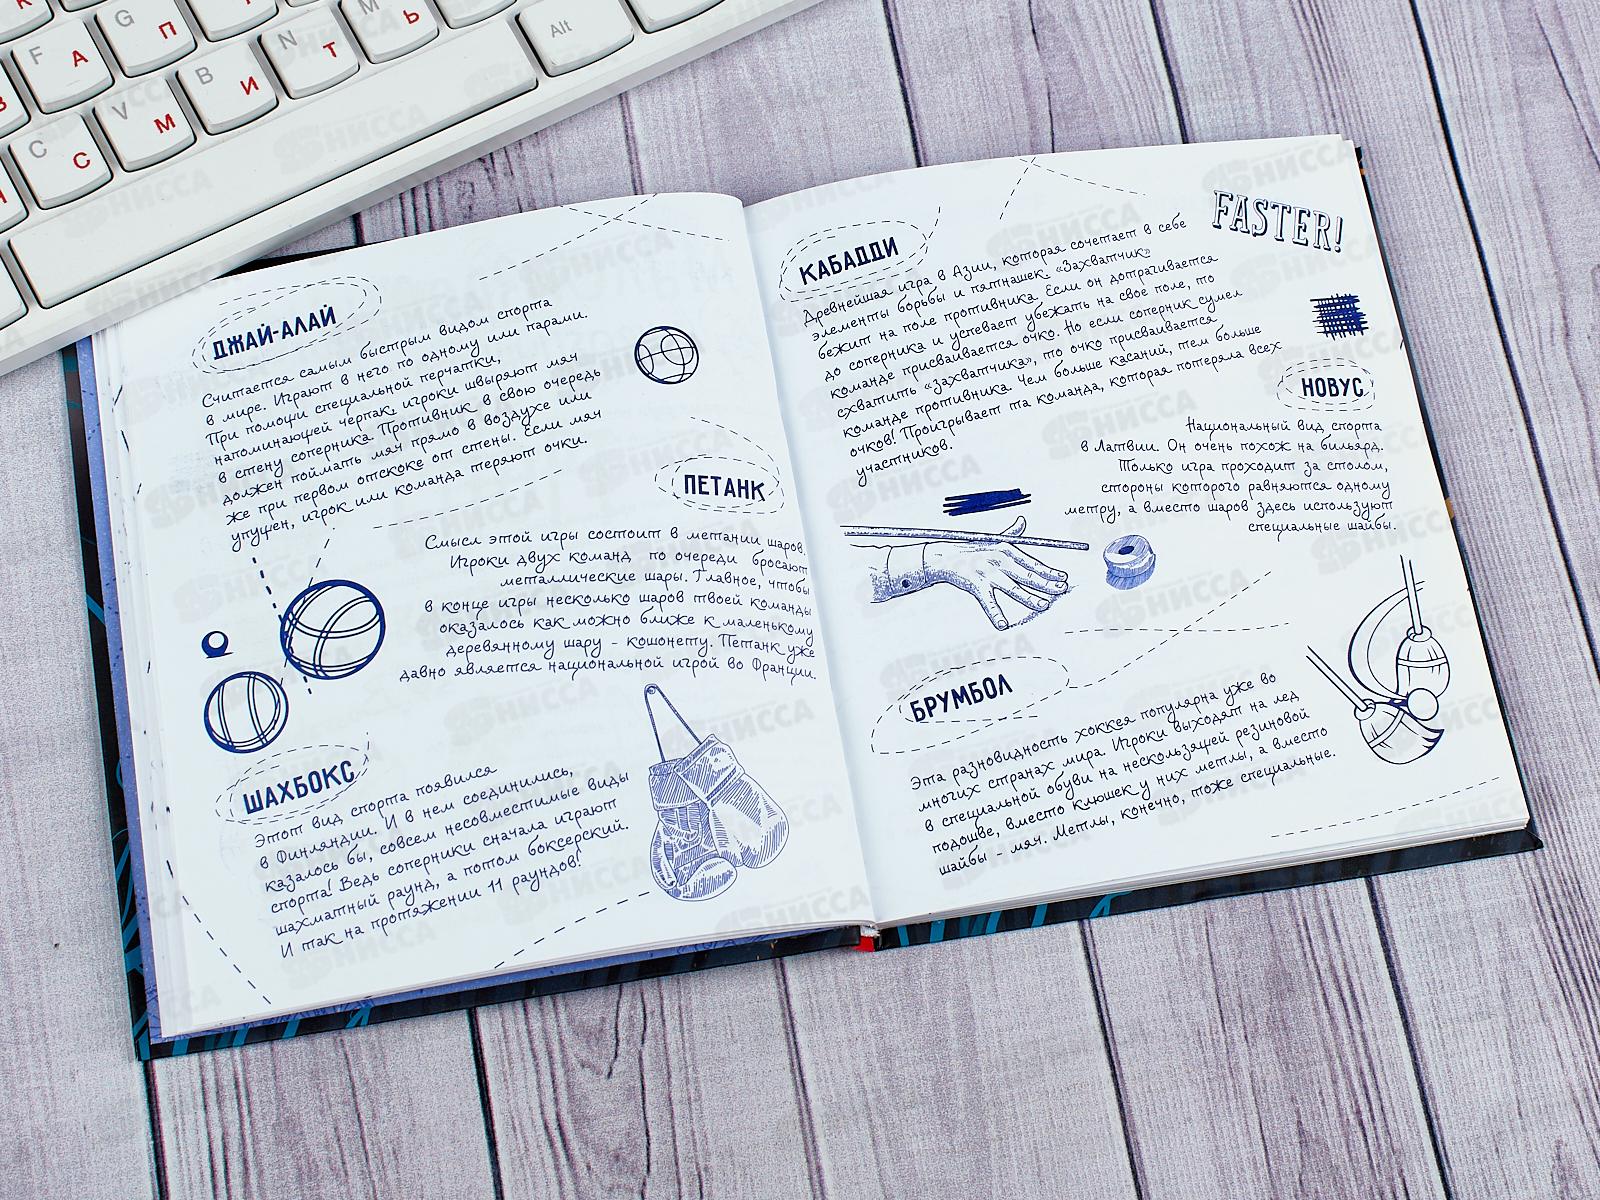 F А
G П
Alt
C С
V М
B И
N Т
M Ь
ДЖАЙ-АЛАЙ
Считается самым быстрым видом спорта
в мире. Играют в него по одному или парами.
При помощи специальной перчатки,
напоминающей черпак, игроки швыряют мяч
в стену соперника. Противник в свою очередь
должен поймать мяч прямо в воздухе или
же при первом отскоке от стены. Если мяч
упущен, игрок или команда теряют очки.
ПЕТАНК
Смысл этой игры состоит в метании шаров.
Игроки двух команд по очереди бросают
металлические шары. Главное, чтобы
в конце игры несколько шаров твоей команды
оказалось как можно ближе к маленькому
деревянному шару - кошонету. Петанк уже
давно является национальной игрой во Франции.
ШАХБОКС
Этот вид спорта появился
в Финляндии. И в нем соединились,
казалось бы, совсем несовместимые виды
спорта! Ведь соперники сначала играют
шахматный раунд, а потом боксерский.
И так на протяжении 11 раундов!
FASTER!
КАБАДДИ
Древнейшая игра в Азии, которая сочетает в себе
элементы борьбы и пятнашек. «Захватчик»
бежит на поле противника. Если он дотрагивается
до соперника и успевает убежать на свое поле, то
команде присваивается очко. Но если соперник сумел
схватить «захватчика», то очко присваивается
команде противника. Чем больше касаний, тем больше
очков! Проигрывает та команда, которая потеряла всех
участников.
НОВУС
Национальный вид спорта
в Латвии. Он очень похож на бильярд.
Только игра проходит за столом,
стороны которого равняются одному
метру, а вместо шаров здесь используют
специальные шайбы.
БРУМБОЛ
Эта разновидность хоккея популярна уже во
многих странах мира. Игроки выходят на лед
в специальной обуви на нескользящей резиновой
подошве, вместо клюшек у них метлы, а вместо
шайбы - мяч. Метлы, конечно, тоже специальные.